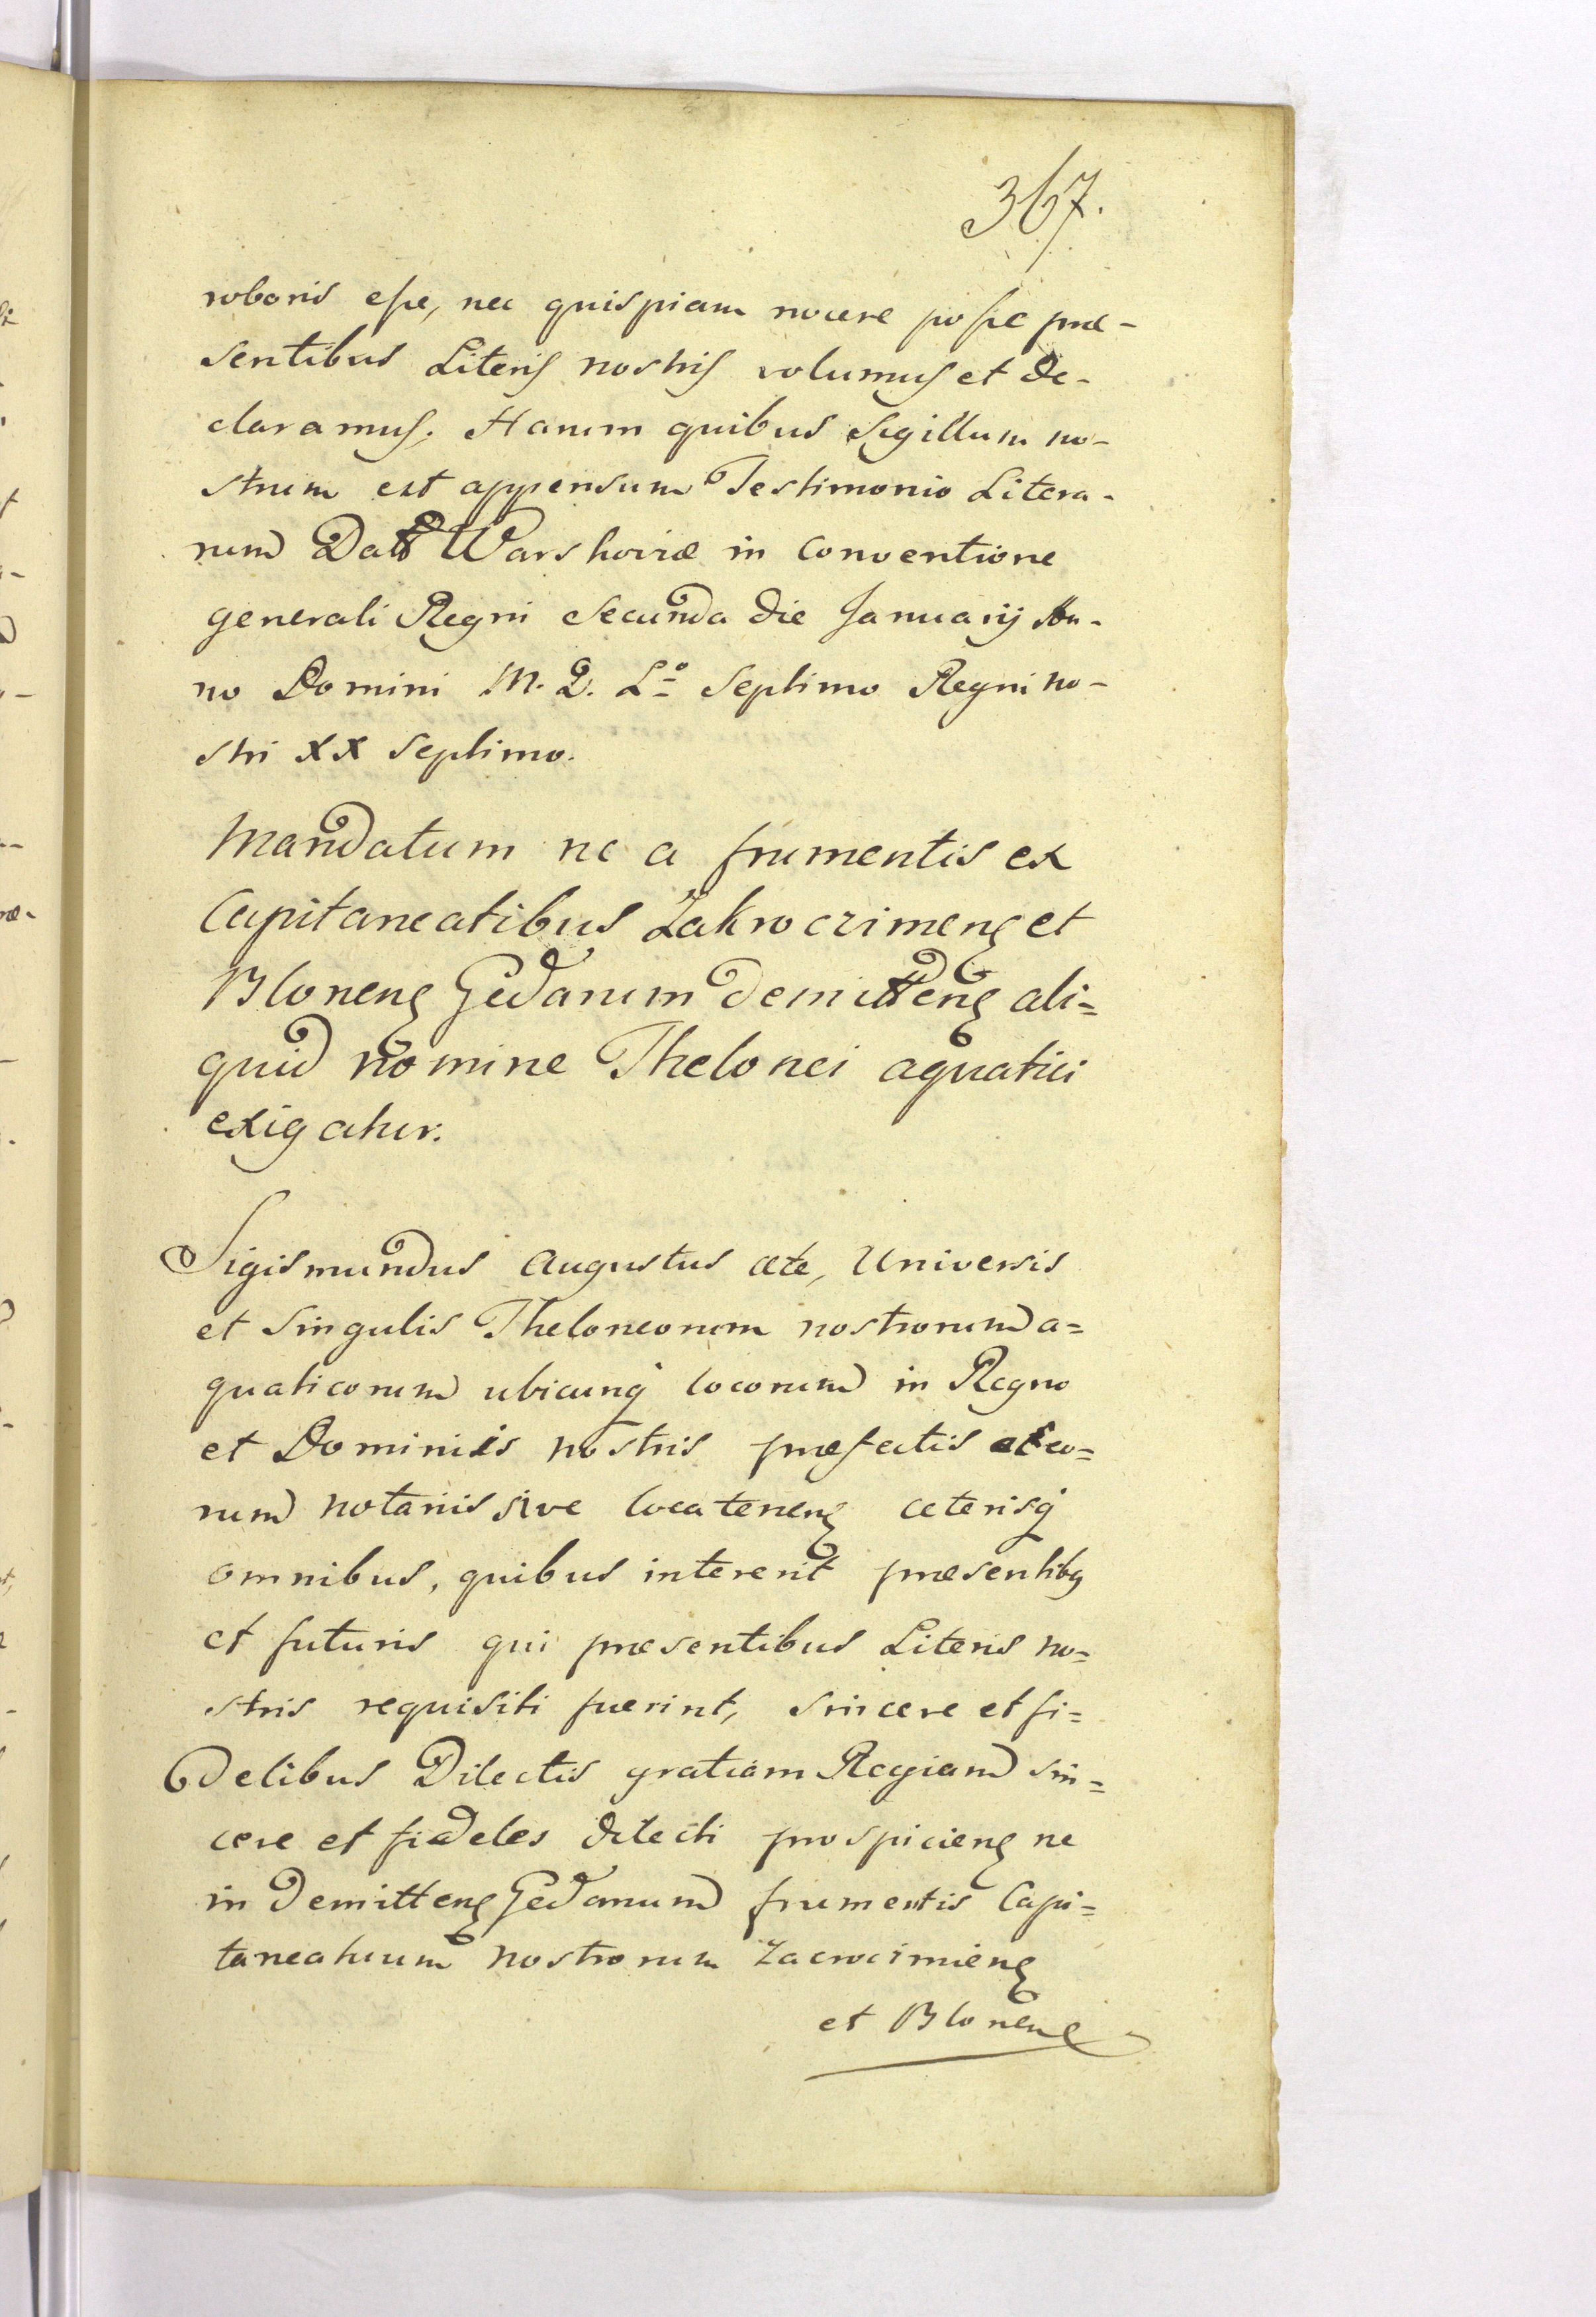 367.
roboris esse, nec quispiam nocere posse præ-
sentibus Literis nostris volumus et de-
claramus. Harum quibus Sigillum no-
strum est appensum Testimonio Litera-
rum Datt Warshoviæ in Conventione
generali Regni Secunda die Januarij An-
no Domini M. D. Lº Septimo Regni no-
stri XX Septimo.
Mandatum ne a frumentis ex
Capitaneatibus Zakroczimenȝ et
Blonenȝ Gedanum demittenȝ ali=
quid nomine Thelonei aquatici
exigatur.
Sigismundus Augustus ætc, Universis
et Singulis Theloneorum nostrorum a=
quaticorum ubicunq̃ locorum in Regno
et Dominiis nostris præfectis et eo=
rum notariis sive locatenenȝ ceterisq̃
omnibus, quibus intererit præsentibꝫ
et futuris qui præsentibus Literis no=
stris requisiti fuerint, Sincere et fi=
delibus Dilectis gratiam Regiam sin=
cere et fideles dilecti prospicienȝ ne
in demittenȝ Gedanum frumentis Capi=
taneatuum nostrorum Zacrocimienȝ
et Blonenȝ